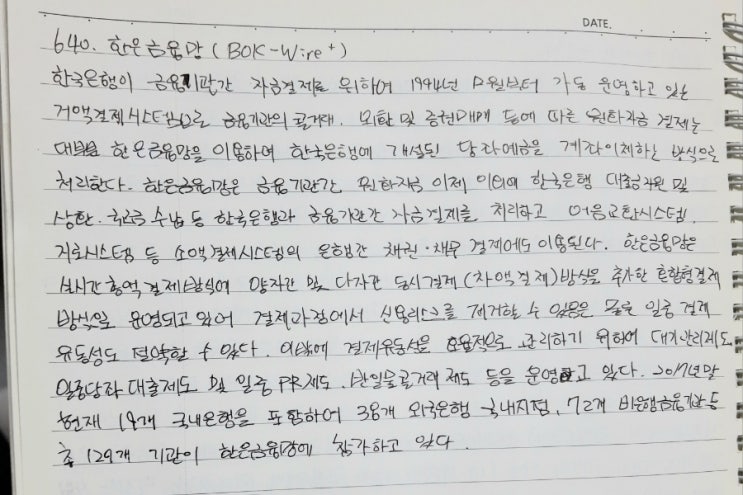 DATE.
640. 한은금융망(BOK-Wire+)
한국은행이 금융기관간 자금결제를 위하여 1994년 12월부터 가동 운영하고 있는
거액결제시스템으로 금융기관의 콜거래, 외환 및 증권매매 등에 따른 원화자금 결제는
대부분 한은금융망을 이용하여 한국은행에 개설된 당좌예금을 계좌이체하는 방식으로
처리한다. 한은금융망은 금융기관간 원화자금 이체 이외에 한국은행 대출금 지원 및
상환, 국고금 수납 등 한국은행과 금융기관간 자금결제를 처리하고 어음교환시스템,
지로시스템 등 소액결제시스템의 은행간 채권·채무 결제에도 이용된다. 한은금융망은
실시간총액결제방식에 양자간 및 다자간 동시결제(차액결제)방식을 추가한 혼합형결제
방식일 운영되고 있어 결제과정에서 신용리스크를 제거할 수 있음은 물론 일중 결제
유동성도 절약할 수 있다. 이밖에 결제유동성을 효율적으로 관리하기 위하여 대기관리제도,
일중당좌대출제도 및 일중 PR제도, 반일물콜거래 제도 등을 운영하고 있다. 2017년말
현재 19개 국내은행을 포함하여 38개 외국은행 국내지점, 72개 비은행금융기관 등
총 129개 기관이 한은금융망에 참가하고 있다.